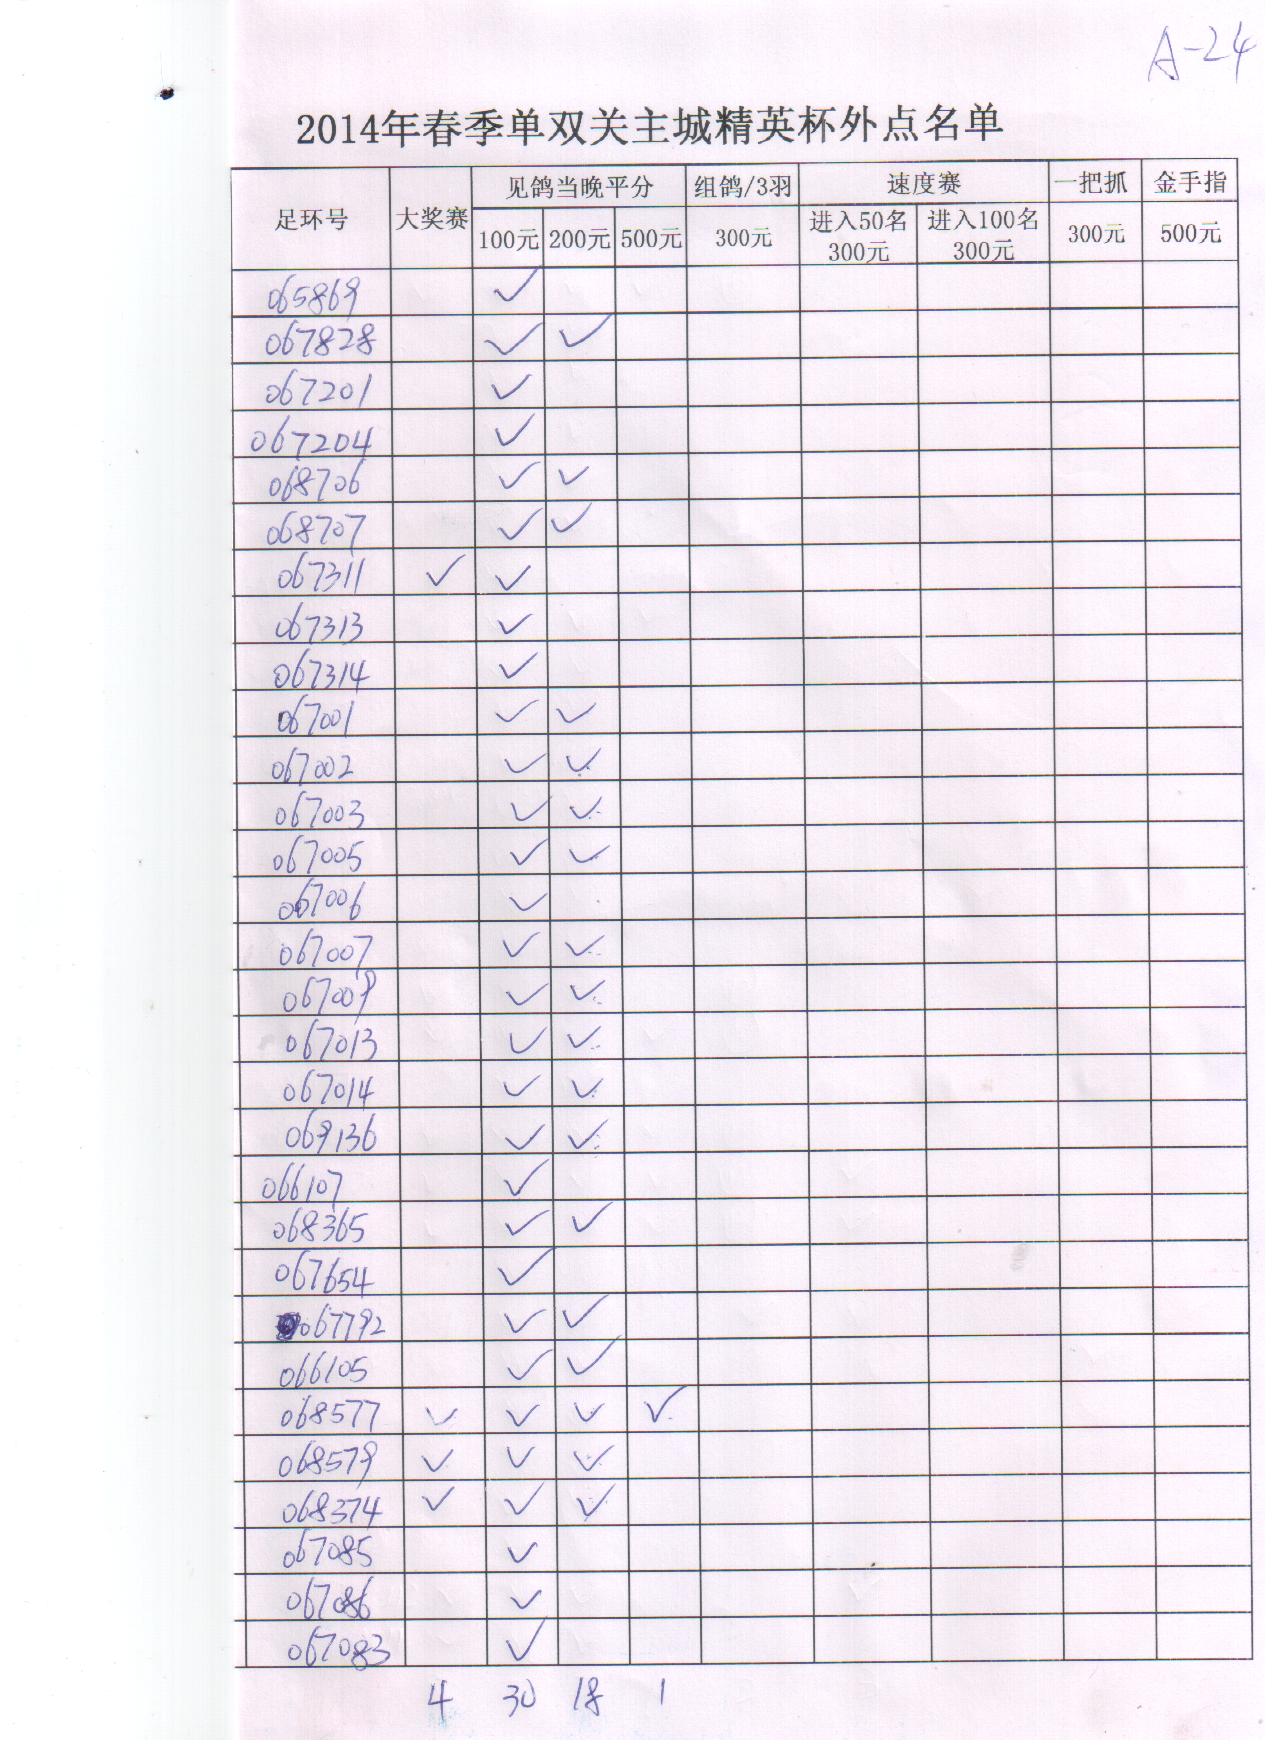 A-24
2014年春季单双关主城精英杯外点名单
足环号 大奖赛 见鸽当晚平分 组鸽/3羽 速度赛 一把抓 金手指
100元 200元 500元 300元 进入50名 300元 进入100名 300元 300元 500元
065869 ✓
067828 ✓ ✓
067201 ✓
067204 ✓
068706 ✓ ✓
068707 ✓ ✓
067311 ✓ ✓
067313 ✓
067314 ✓
067001 ✓ ✓
067002 ✓ ✓
067003 ✓ ✓
067005 ✓ ✓
067006 ✓
067007 ✓ ✓
067009 ✓ ✓
067013 ✓ ✓
067014 ✓ ✓
069136 ✓ ✓
066107 ✓
068365 ✓ ✓
067654 ✓
067792 ✓ ✓
066105 ✓ ✓
068577 ✓ ✓ ✓ ✓
068579 ✓ ✓ ✓
068374 ✓ ✓ ✓
067085 ✓
067086 ✓
067083 ✓
4 30 18 1